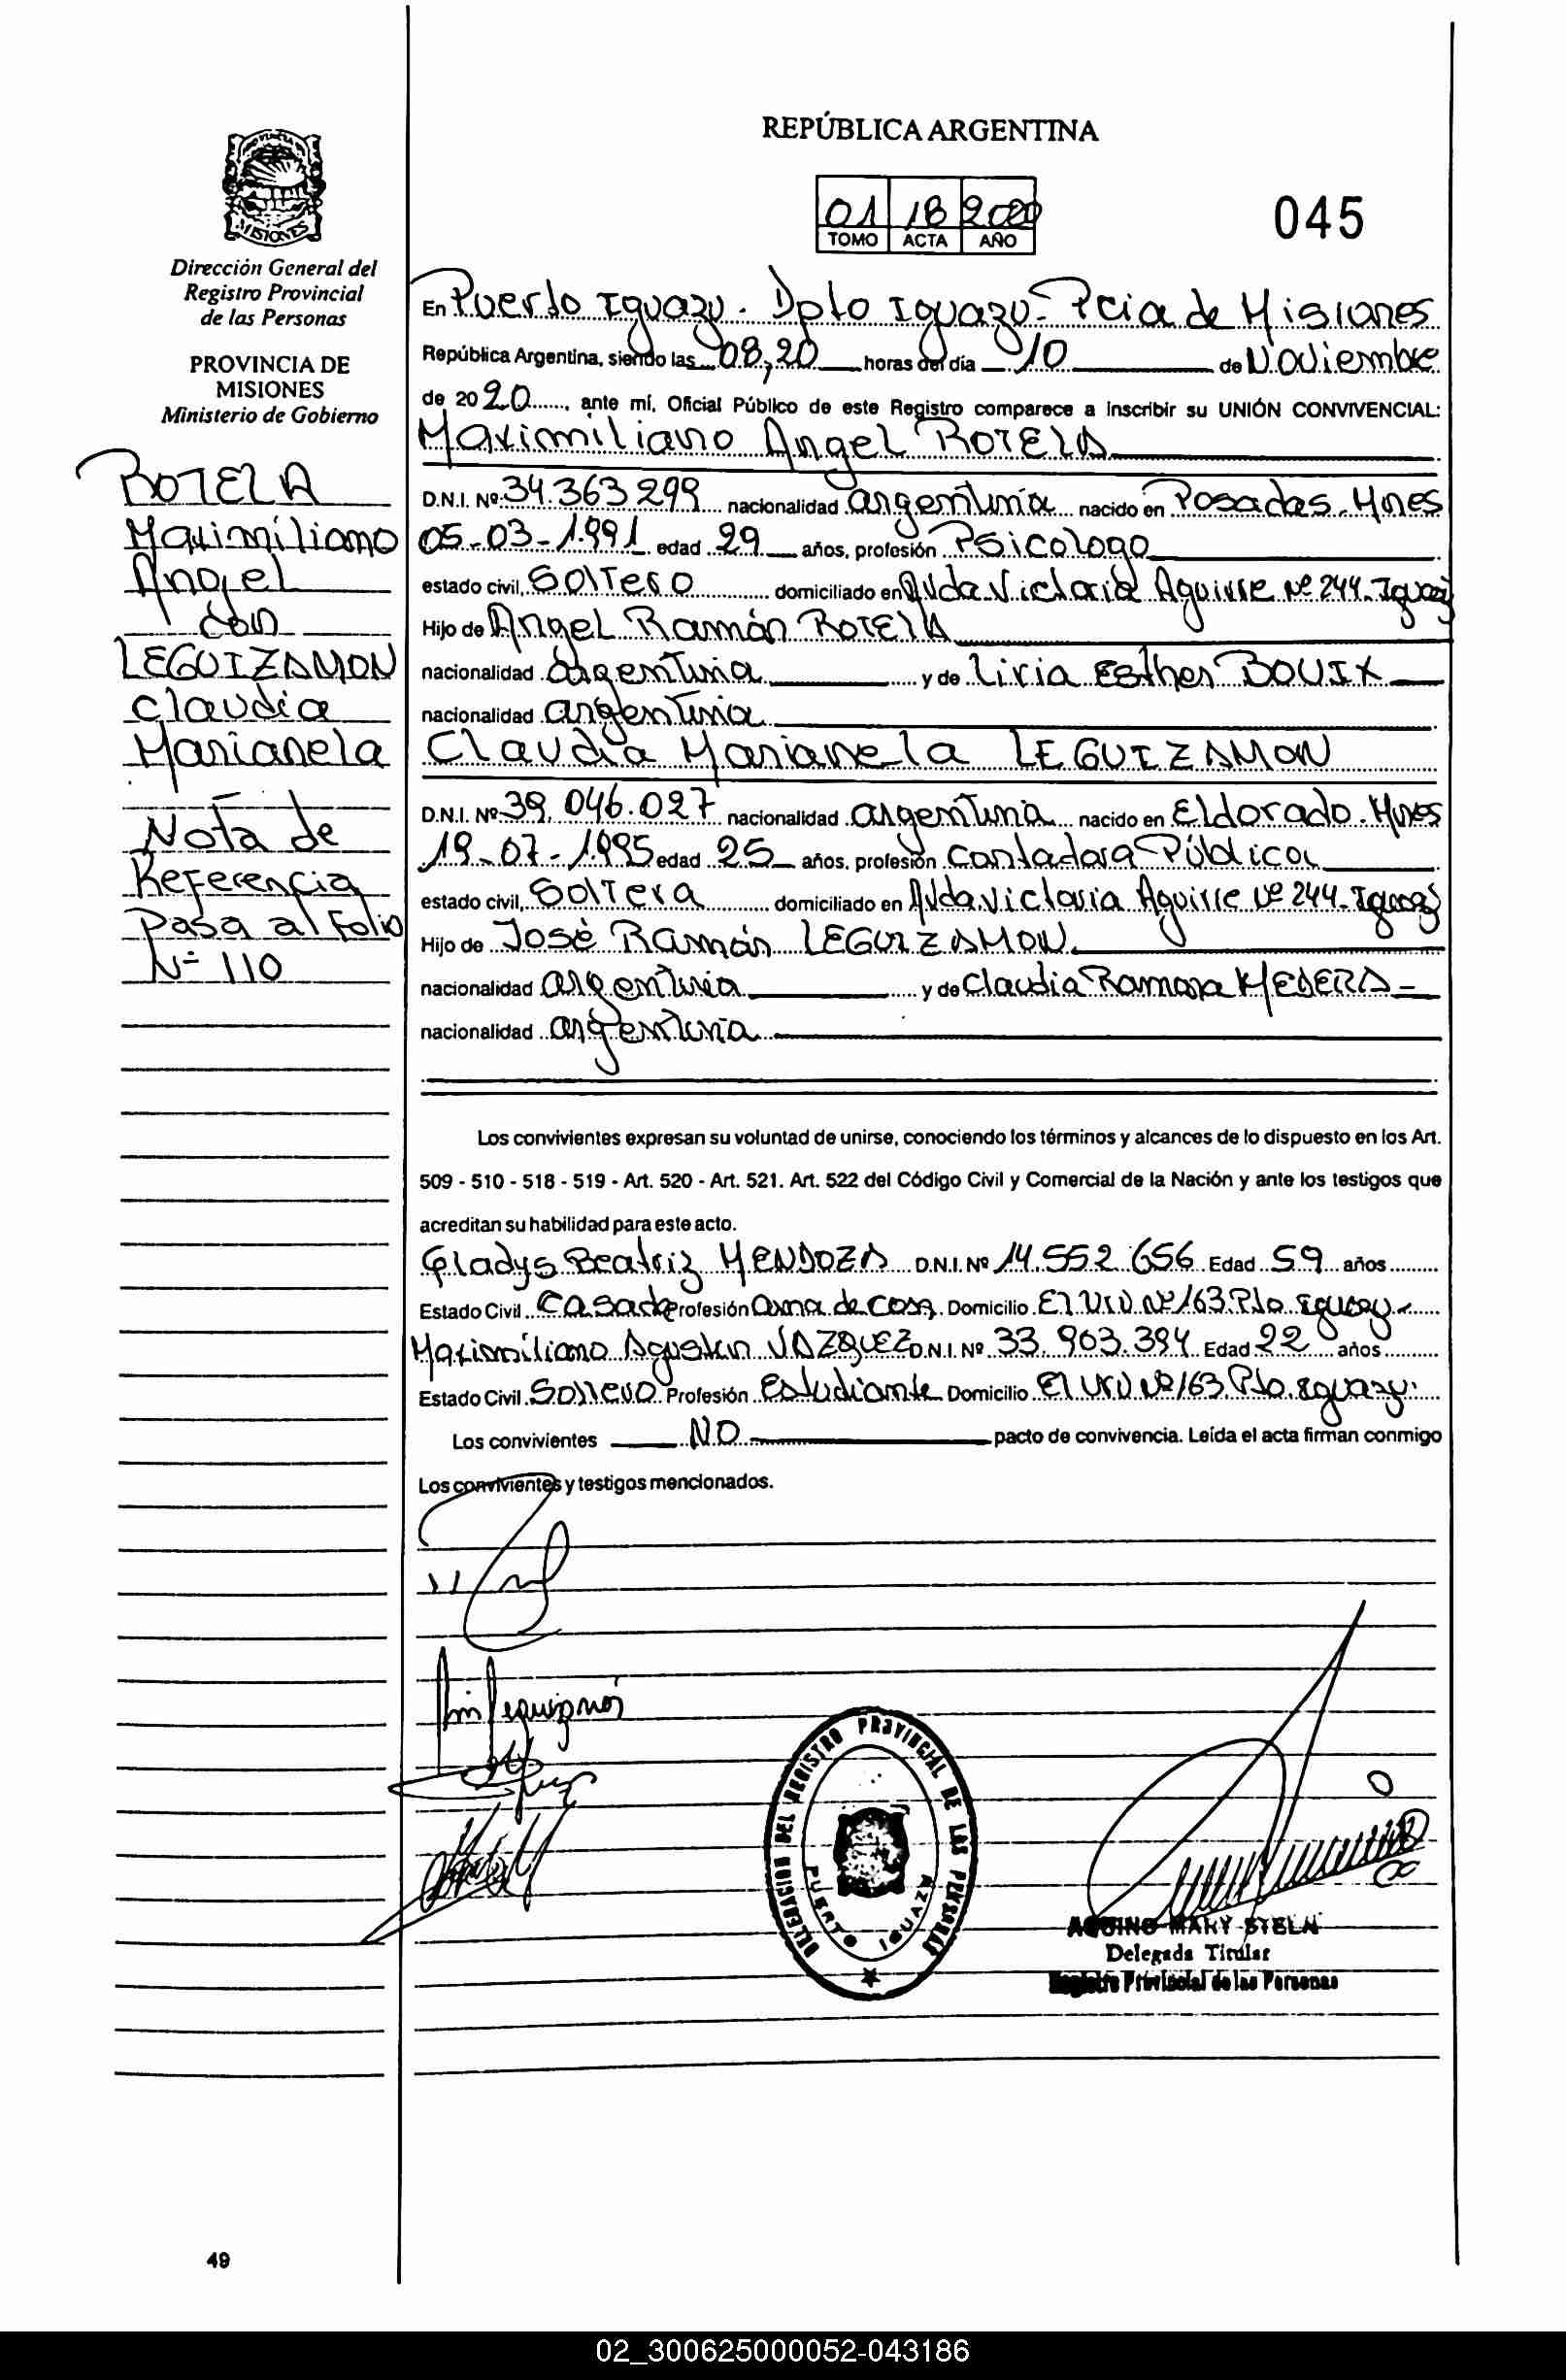 REPÚBLICA ARGENTINA
01 18 2020
TOMO ACTA AÑO
045
MISIONES
Dirección General del
Registro Provincial
de las Personas
PROVINCIA DE
MISIONES
Ministerio de Gobierno
ROTELA
Maximiliano
Angel
con
LEGUIZAMON
Claudia
Marianela
Nota de
Referencia
Pasa al Folio
Nº 110
En Puerto Iguazu. Dpto Iguazu- Pcia de Misiones
República Argentina, siendo las 08,20 horas del día 10 de Noviembre
de 2020, ante mí, Oficial Público de este Registro comparece a inscribir su UNIÓN CONVIVENCIAL:
Maximiliano Angel ROTELA
D.N.I. Nº 34.363299 nacionalidad argentina nacido en Posadas-Mnes
05-03-1991 edad 29 años, profesión Psicologo
estado civil, Soltero domiciliado en Avda Victoria Aguirre Nº 244-Iguazú
Hijo de Angel Ramón ROTELA
nacionalidad argentina y de Liria Esther BOUIX
nacionalidad argentina
Claudia Marianela LEGUIZAMON
D.N.I. Nº 39.046.027 nacionalidad argentina nacido en Eldorado-Mnes
19-07-1995 edad 25 años, profesión Contadora Pública
estado civil, Soltera domiciliado en Avda Victoria Aguirre Nº 244-Iguazú
Hijo de José Ramón LEGUIZAMON
nacionalidad argentina y de Claudia Ramona MEDERA-
nacionalidad argentina
Los convivientes expresan su voluntad de unirse, conociendo los términos y alcances de lo dispuesto en los Art.
509 - 510 - 518 - 519 - Art. 520 - Art. 521. Art. 522 del Código Civil y Comercial de la Nación y ante los testigos que
acreditan su habilidad para este acto.
Gladys Beatriz MENDOZA D.N.I. Nº 14.552.656 Edad 59 años
Estado Civil Casada Profesión ama de casa Domicilio El Urú Nº 163 Pto Iguazu
Maximiliano Agustin VAZQUEZ D.N.I. Nº 33.903.394 Edad 22 años
Estado Civil Soltero Profesión Estudiante Domicilio El Urú Nº 163 Pto. Iguazu.
Los convivientes NO pacto de convivencia. Leída el acta firman conmigo
Los convivientes y testigos mencionados.
DELEGACION DEL REGISTRO PROVINCIAL DE LAS PERSONAS
PUERTO IGUAZU
AQUINO MARY STELA
Delegada Titular
Registro Provincial de las Personas
49
02_300625000052-043186